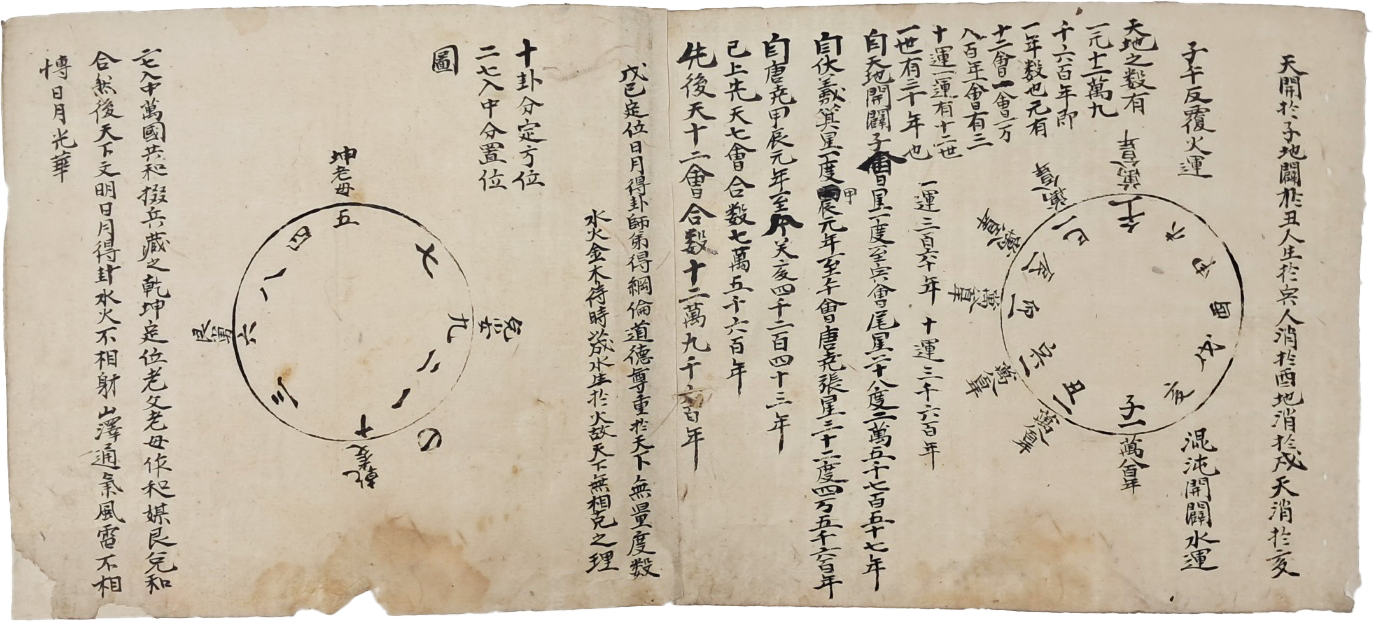 天開於子地闢於丑人生於寅人消於酉地消於戌天消於亥
子午反覆火運
混沌開闢水運
天地之数有
一元十二萬九
千六百年即
一年数也元有
十二會一會一万
八百年一會有三
十運一運有十二世
一世有三十年也
一運三百六十年 十運三千六百年
自天地開闢子會日星一度至寅會尾星二十八度二萬五千七百五十七年
自伏羲箕星一度甲辰元年至午會唐堯張星三十二度四万五千六百年
自唐堯甲辰元年至癸亥四千二百四十三年
已上先天七會合数七萬五千六百年
先後天十二會合数十二萬九千六百年
子一
丑二
巳
午
未
申
酉
戌
亥
戊己定位日月得卦師弟得綱倫道德尊重於天下無量度数
水火金木待時箴水生於火故天下無相克之理
十卦分定方位
二七入中分置位
圖
坤老母
五
四
七
九
八
六
二
一
三
十
乾老父
二七入中萬國共和掇兵藏之乾坤定位老父老母作和媒艮兌和
合然後天下文明日月得卦水火不相射山澤通氣風雷不相
悖日月光華